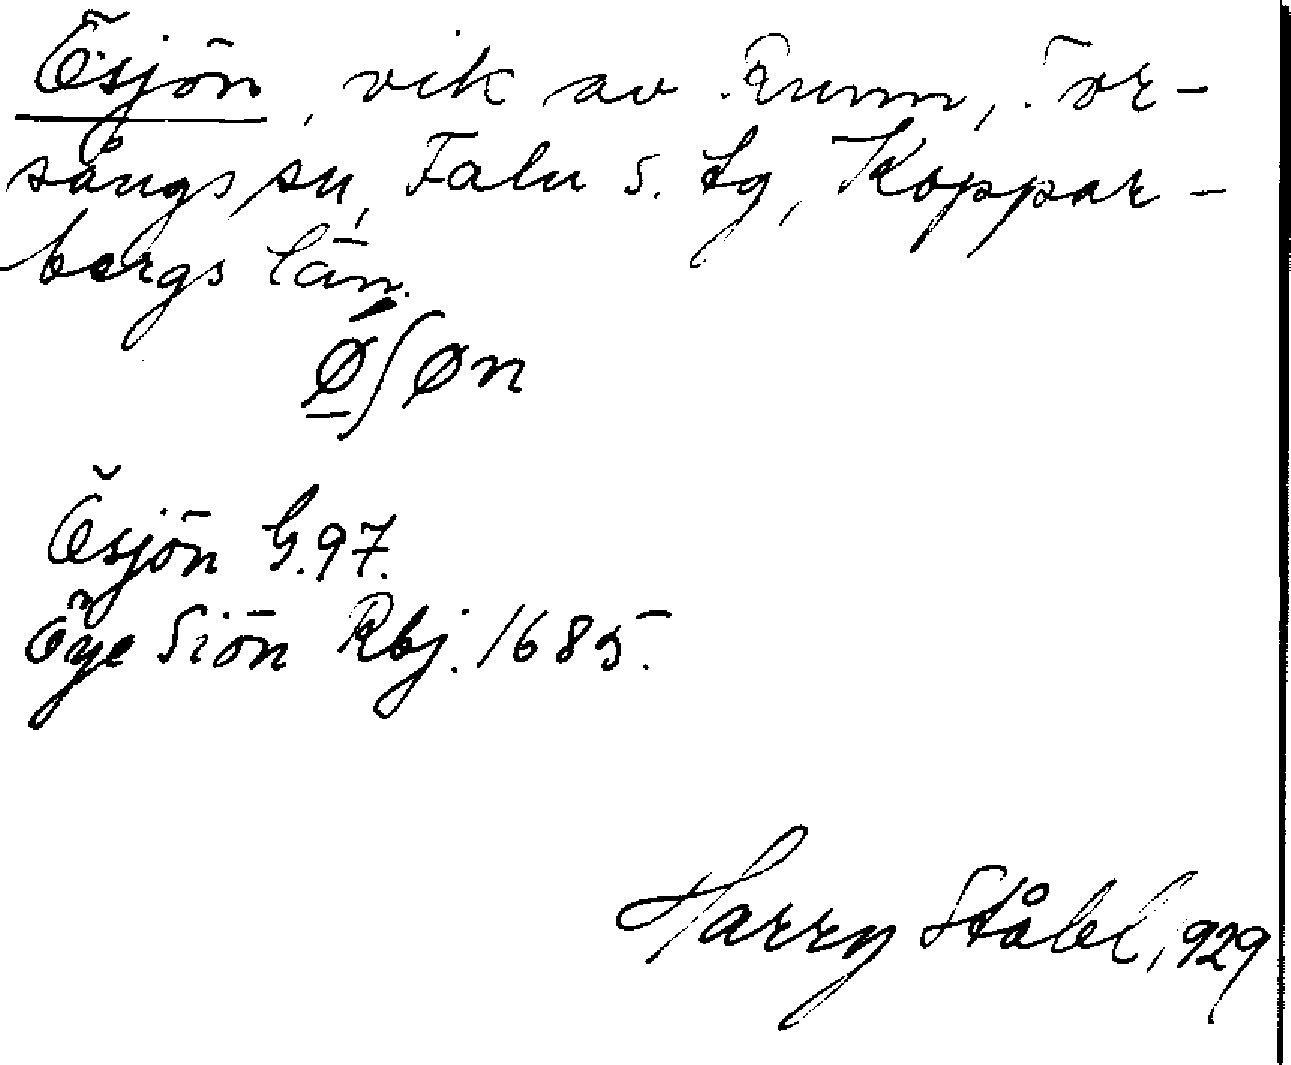 Ösjön, vik av Runn, Tor-
sångs sn, Falu s. tg, Koppar-
bergs län.
ǿ̱ʃøn
Ösjön G.97.
Öÿe Siön Rbj. 1685.
Harry Ståhl, 929